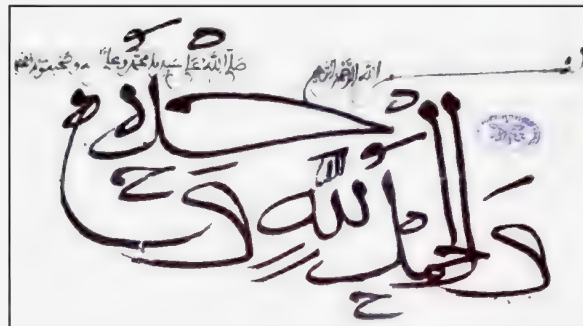 بسم الله الرحمن الرحيم صلى الله على سيدنا محمد وعلى آله وصحبه
والحمد لله وحده